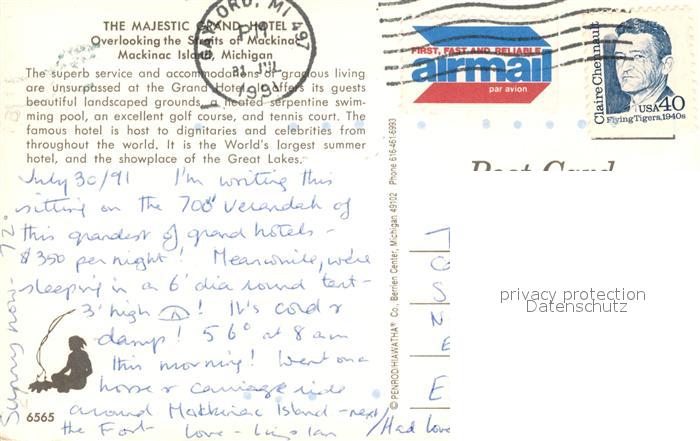 THE MAJESTIC GRAND HOTEL
Overlooking the Straits of Mackinac
Mackinac Island, Michigan
The superb service and accommodations of gracious living
are unsurpassed at the Grand Hotel. It offers its guests
beautiful landscaped grounds, a heated serpentine swim-
ming pool, an excellent golf course, and tennis court. The
famous hotel is host to dignitaries and celebrities from
throughout the world. It is the World's largest summer
hotel, and the showplace of the Great Lakes.
MI 497
PM
1991
FIRST, FAST AND RELIABLE
airmail
par avion
Claire Chennault
USA 40
Flying Tigers, 1940s
Post Card
July 30/91 I'm writing this
sitting on the 700' Verandah of
this grandest of grand hotels -
$350 per night! Meanwhile, we're
sleeping in a 6' dia round tent -
3' high ! It's cold &
damp! 56° at 8 am
this morning! Went on a
horse & carriage ride
around Makkinac Island - next
the Fort. Love -
/Had love
Sunny now - 72°
6565
© PENRODHIAWATHA® Co., Berrien Center, Michigan 49102 Phone 616-461-6993
privacy protection
Datenschutz